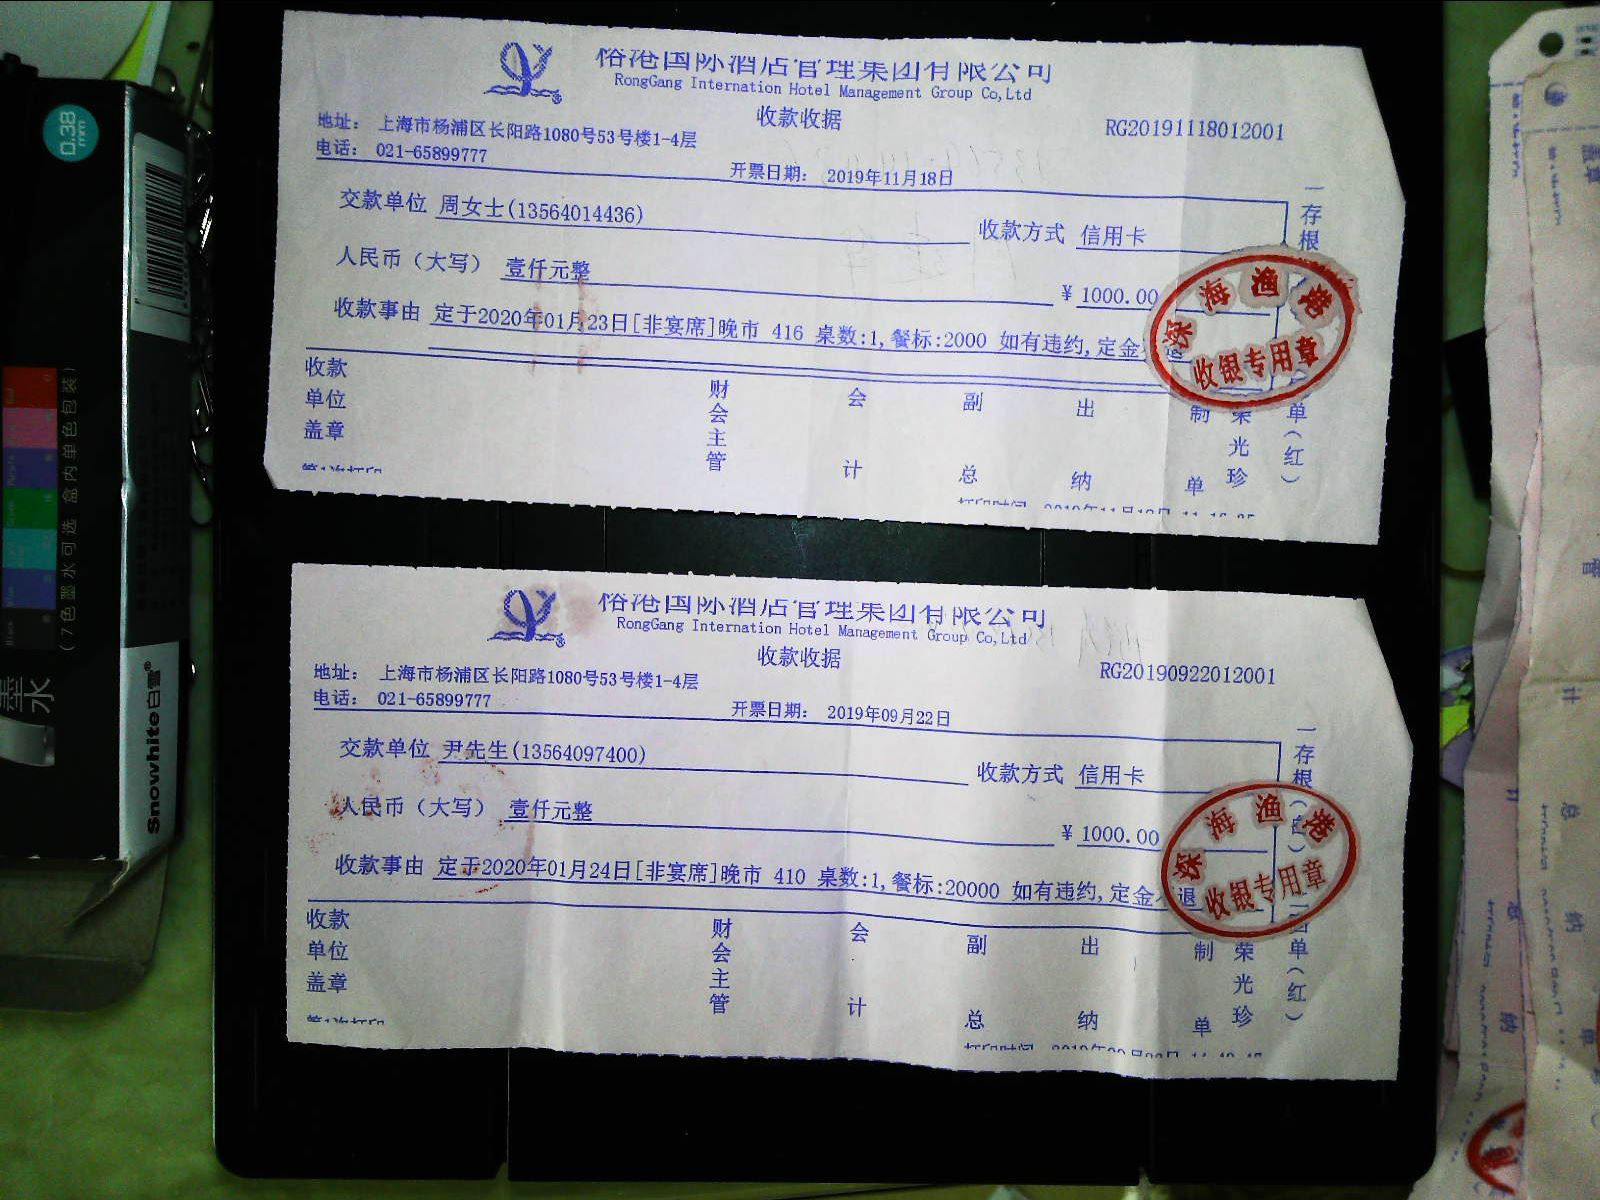 裕港国际酒店管理集团有限公司
RongGang Internation Hotel Management Group Co,Ltd
收款收据
RG20191118012001
地址： 上海市杨浦区长阳路1080号53号楼1-4层
电话： 021-65899777
开票日期： 2019年11月18日
交款单位 周女士(13564014436)
收款方式 信用卡
人民币（大写） 壹仟元整
¥ 1000.00
收款事由 定于2020年01月23日[非宴席]晚市 416 桌数:1,餐标:2000 如有违约,定金
深海渔港
收银专用章
收款单位盖章
财会主管
会计
副总
出纳
制单
荣光珍
一存根
单(红)
第1次打印
打印时间
裕港国际酒店管理集团有限公司
RongGang Internation Hotel Management Group Co,Ltd
收款收据
RG20190922012001
地址： 上海市杨浦区长阳路1080号53号楼1-4层
电话： 021-65899777
开票日期： 2019年09月22日
交款单位 尹先生(13564097400)
收款方式 信用卡
人民币（大写） 壹仟元整
¥ 1000.00
收款事由 定于2020年01月24日[非宴席]晚市 410 桌数:1,餐标:20000 如有违约,定金不退
深海渔港
收银专用章
收款单位盖章
财会主管
会计
副总
出纳
制单
荣光珍
一存根
单(红)
第1次打印
打印时间
0.38
mm
墨水
(7色墨水可选 盒内单色包装)
Snowhite白雪®